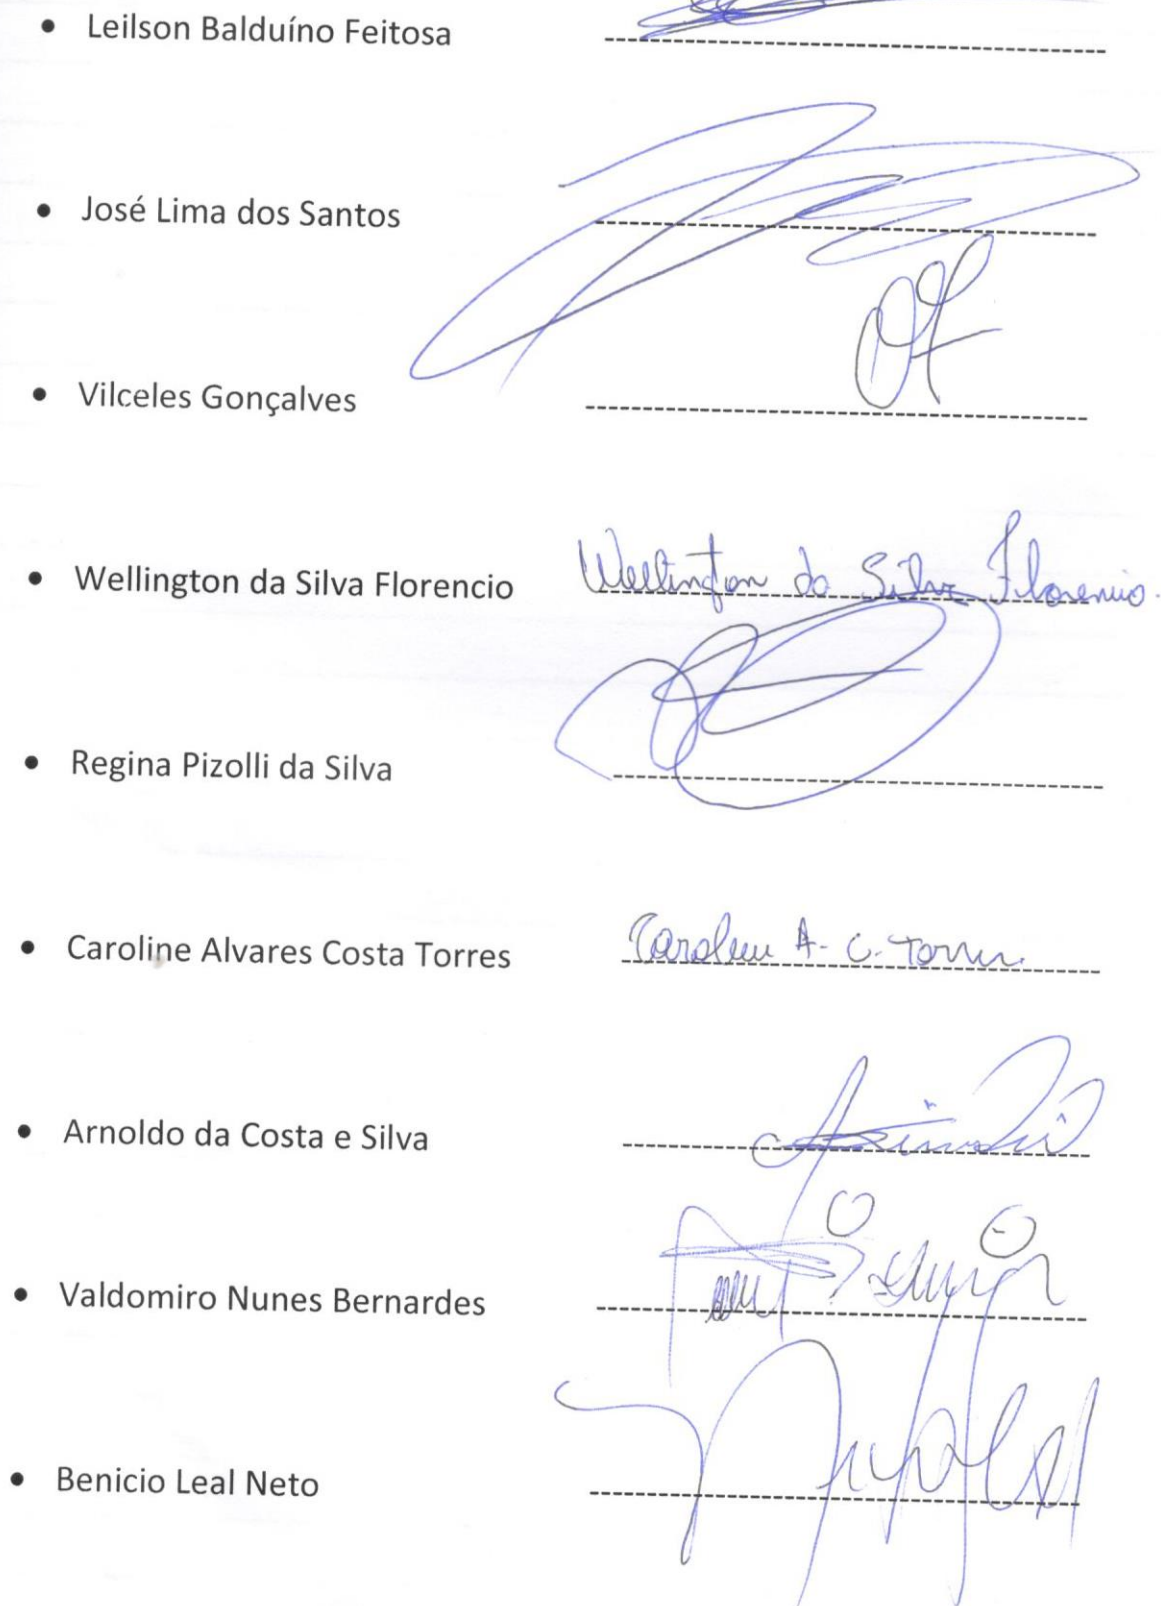 • Leilson Balduíno Feitosa
• José Lima dos Santos
• Vilceles Gonçalves
• Wellington da Silva Florencio Wellington da Silva Florencio.
• Regina Pizolli da Silva
• Caroline Alvares Costa Torres Caroline A. C. Torres
• Arnoldo da Costa e Silva
• Valdomiro Nunes Bernardes
• Benicio Leal Neto